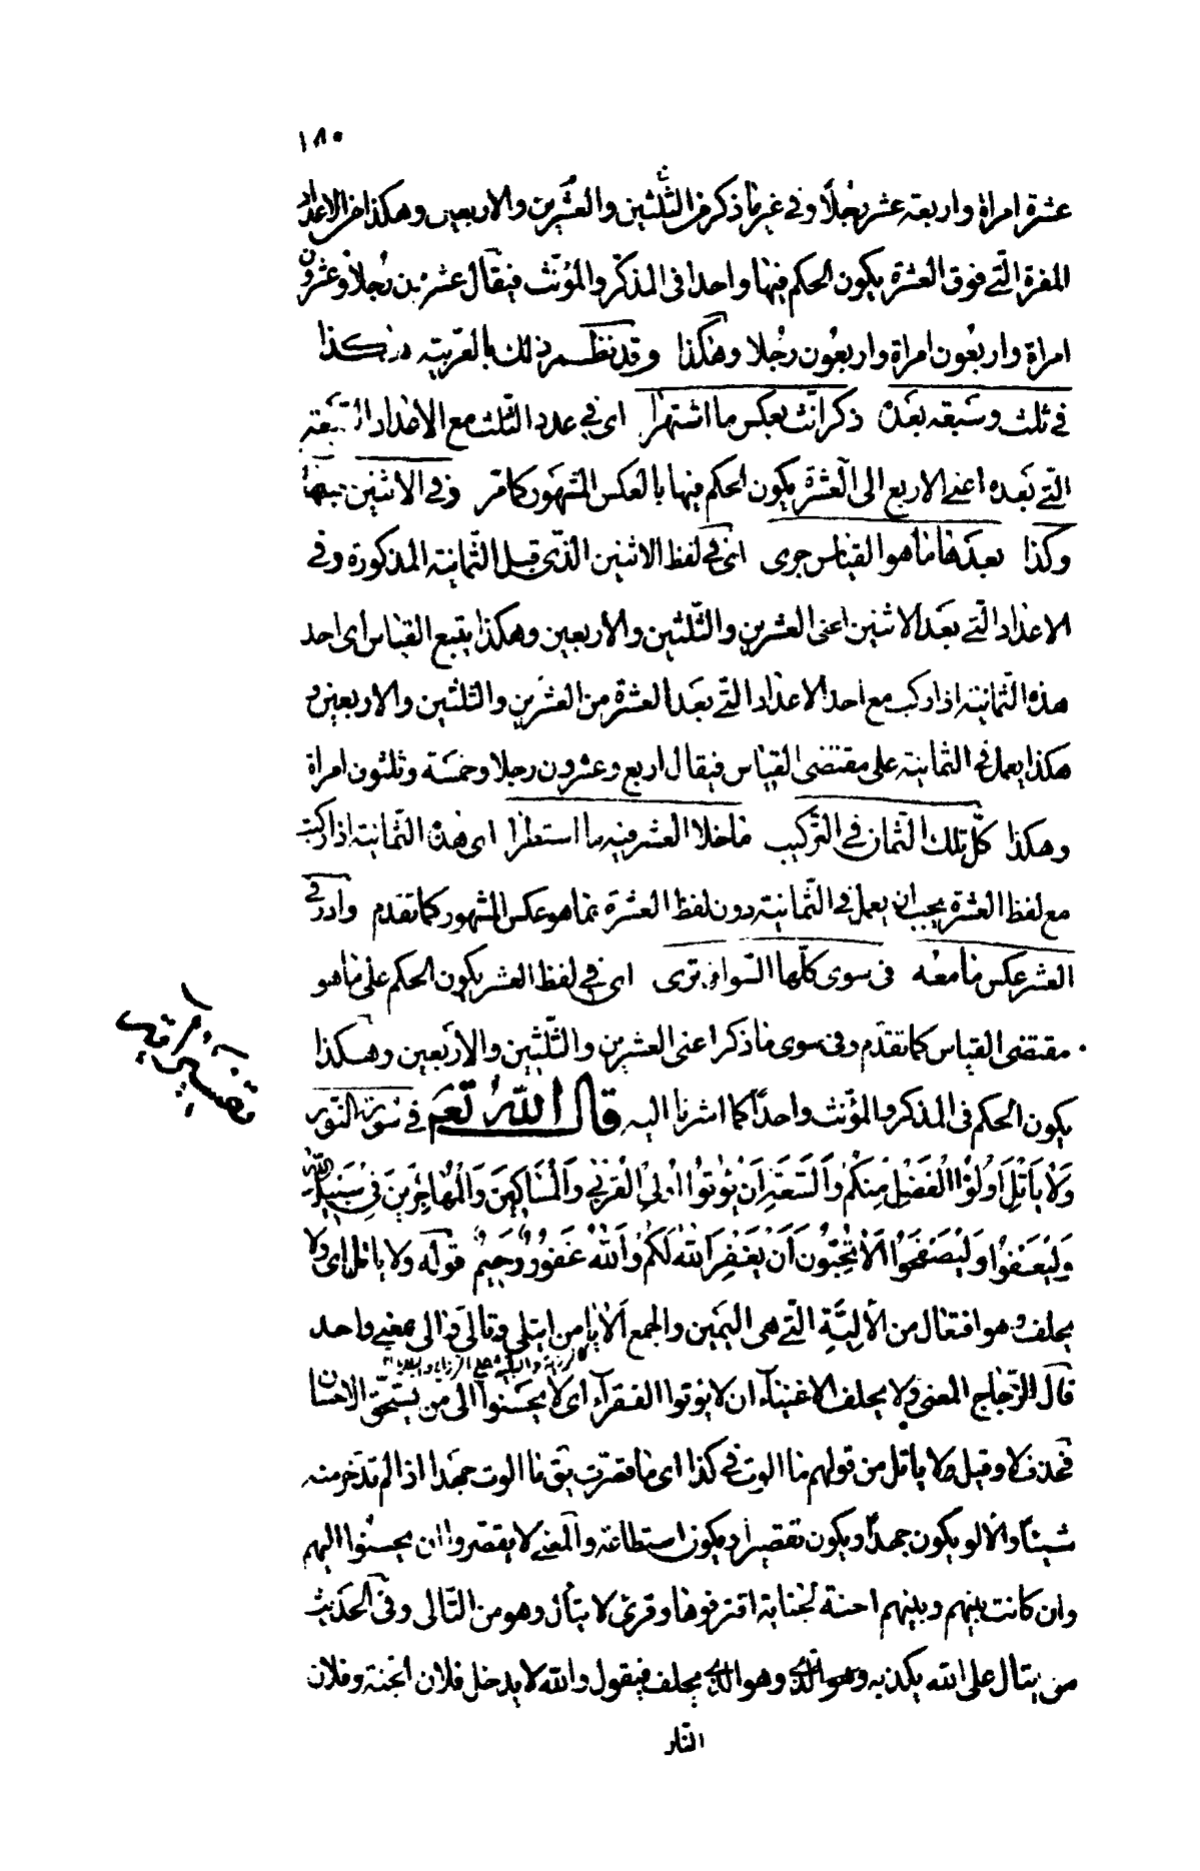 ١٨٠
عشرة امراة واربعة عشر رجلًا وفي غير ما ذكر من الثّلثين والعشرين والاربعين وهكذا من الاعداد
المفردة الّتي فوق العشرة يكون الحكم فيها واحدا في المذكّر والمؤنّث فيقال عشرين رجلًا وعشرون
امراة واربعون امراة واربعون رجلا وهكذا وقد نظم ذلك بالعربيّة هكذا
في ثلث وسبعة بعده ذكر انّث بعكس ما اشتهرا اى في عدد الثّلث مع الاعداد السّبعة
الّتي بعده اعني الاربع الى العشرة يكون الحكم فيها بالعكس المشهور كما مرّ وفي الاثنين قبلها
وكذا بعدها ما هو القياس جرى اى في لفظ الاثنين الّذي قبل الثّمانية المذكورة وفي
الاعداد الّتي بعد الاثنين اعنى العشرين والثّلثين والاربعين وهكذا يتبع القياس اى احد
هذه الثّمانية اذا ركب مع احد الاعداد الّتي بعد العشرة من العشرين والثلثين والاربعين و
هكذا يعمل في الثمانية على مقتضى القياس فيقال اربع وعشرون رجلا وخمسة وثلثون امراة
وهكذا كلّ تلك الثمان في التّركيب ما خلا العشر فيه ما استطرا اى هذه الثّمانية اذا ركبت
مع لفظ العشرة يجب ان يعمل في الثّمانية دون لفظ العشرة بما هو عكس المشهور كما تقدم وادر في
العشر عكس ما معه في سوى كلّها السّواء ترى اى في لفظ العشر يكون الحكم على ما هو
مقتضى القياس كما تقدّم وفي سوى ما ذكر اعنى العشرين والثّلثين والاربعين وهكذا
يكون الحكم في المذكر والمؤنّث واحدًا كما اشرنا اليه قال اللّه تعم في سورة النّور
وَلا يَأتَلِ اُولُوا الْفَضْلِ مِنْكُمْ وَالسَّعَةِ اَنْ يُؤتُوا اُولِي الْقُرْبى وَالْمَسَاكِينَ وَالْمُهاجِرِينَ فِي سَبِيلِ اللّهِ
وَلْيَعْفُوا وَلْيَصْفَحُوا اَلا تُحِبُّونَ اَنْ يَغْفِرَ اللهُ لَكُمْ وَاللهُ غَفُورٌ رَحِيمٌ قوله ولا ياتل اى ولا
يحلف وهو افتعال من الأليّة الّتي هي اليمين والجمع الألايا من ايتلى وتألّى وآلى بمعنى واحد
قال الزّجّاج المعنى ولا يحلف الاغنياء ان لا يؤتوا الفقراء اى لا يحسنوا الى من يستحقّ الاحسان
فحذف لا وقيل ولا ياتل من قولهم ما الوت في كذا اى ما قصرت يق ما الوت جهدا اذا لم تدّخر منه
شيئا والألو يكون جهدًا ويكون تقصيرا ويكون استطاعة والمعنى لا يقصّروا ان يحسنوا اليهم
وان كانت بينهم وبينهم احنة لجناية اقترفوها وقرئ لا يتألّ وهو من التّألى وفي الحديث
من يتال على الله يكذبه وهو الّذي وهو الّذي يحلف فيقول والله لا يدخل فلان الجنة وفلان
النّار
تفسير آية